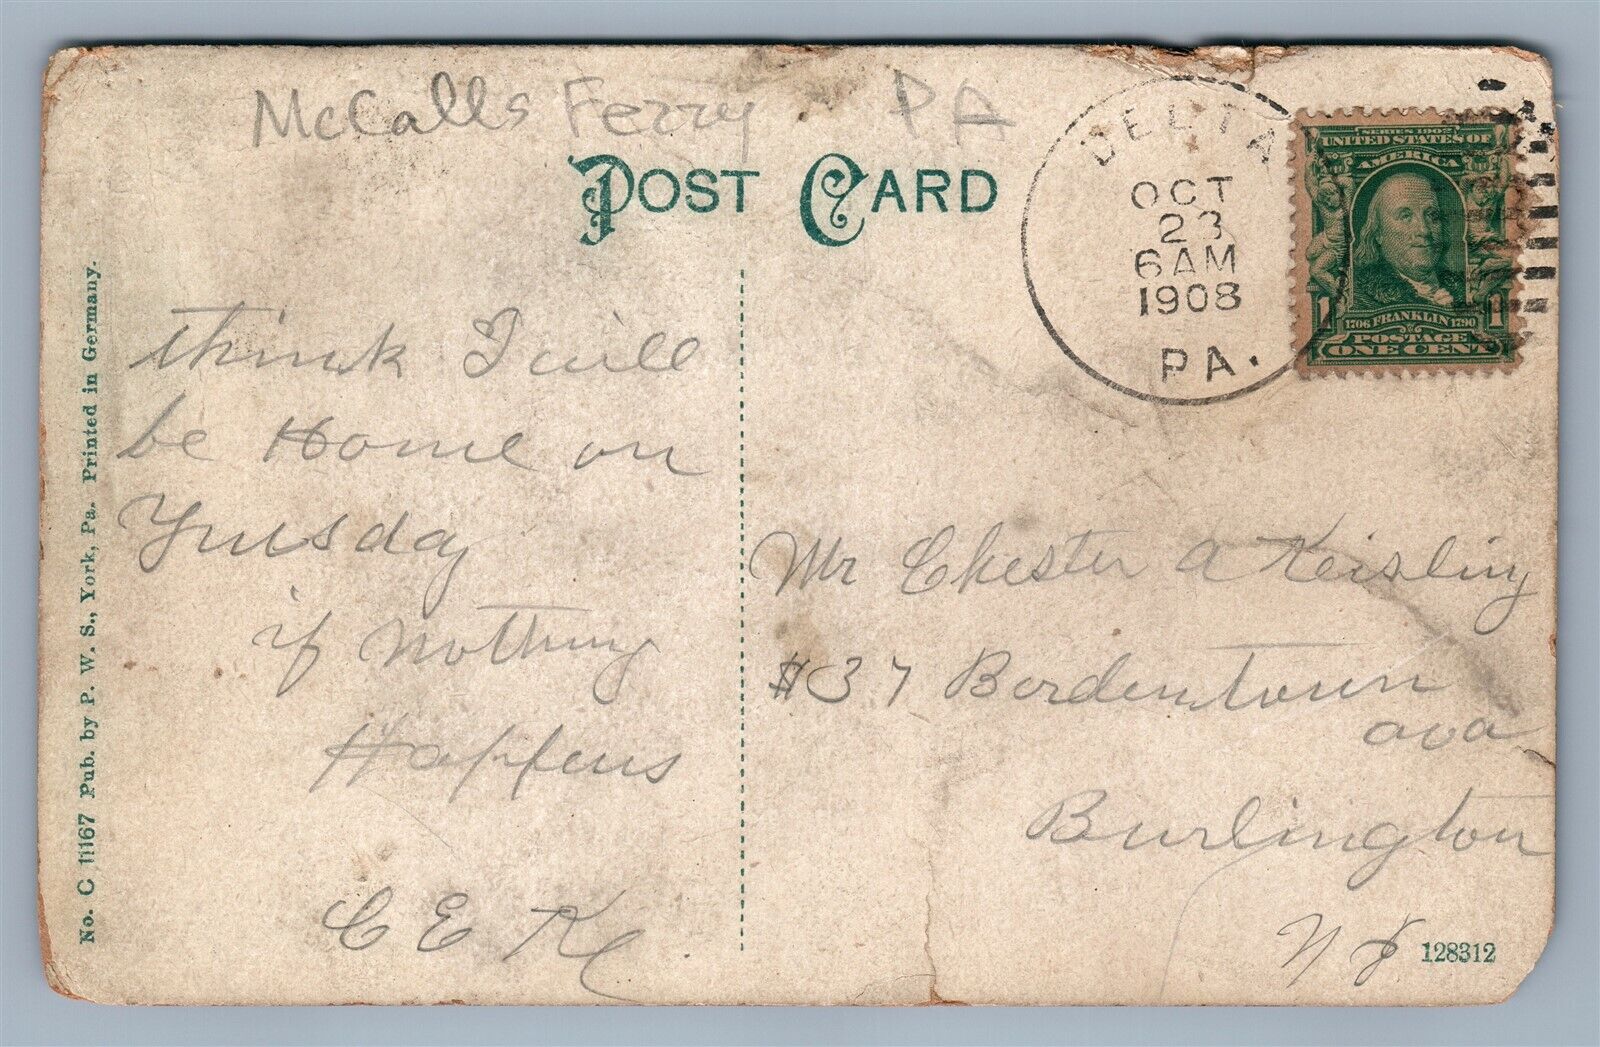 McCalls Ferry PA
POST CARD
DELTA
OCT
23
6AM
1908
PA.
SERIES 1902
UNITED STATES OF
AMERICA
1706 FRANKLIN 1790
1 1
POSTAGE
ONE CENT
think I will
be Home on
Tuesday
if nothing
Happens
C E K
Mr Chester A Keisling
#37 Bordentown
ava
Burlington
N J
128312
No. C 11167 Pub. by P. W. S., York, Pa. Printed in Germany.